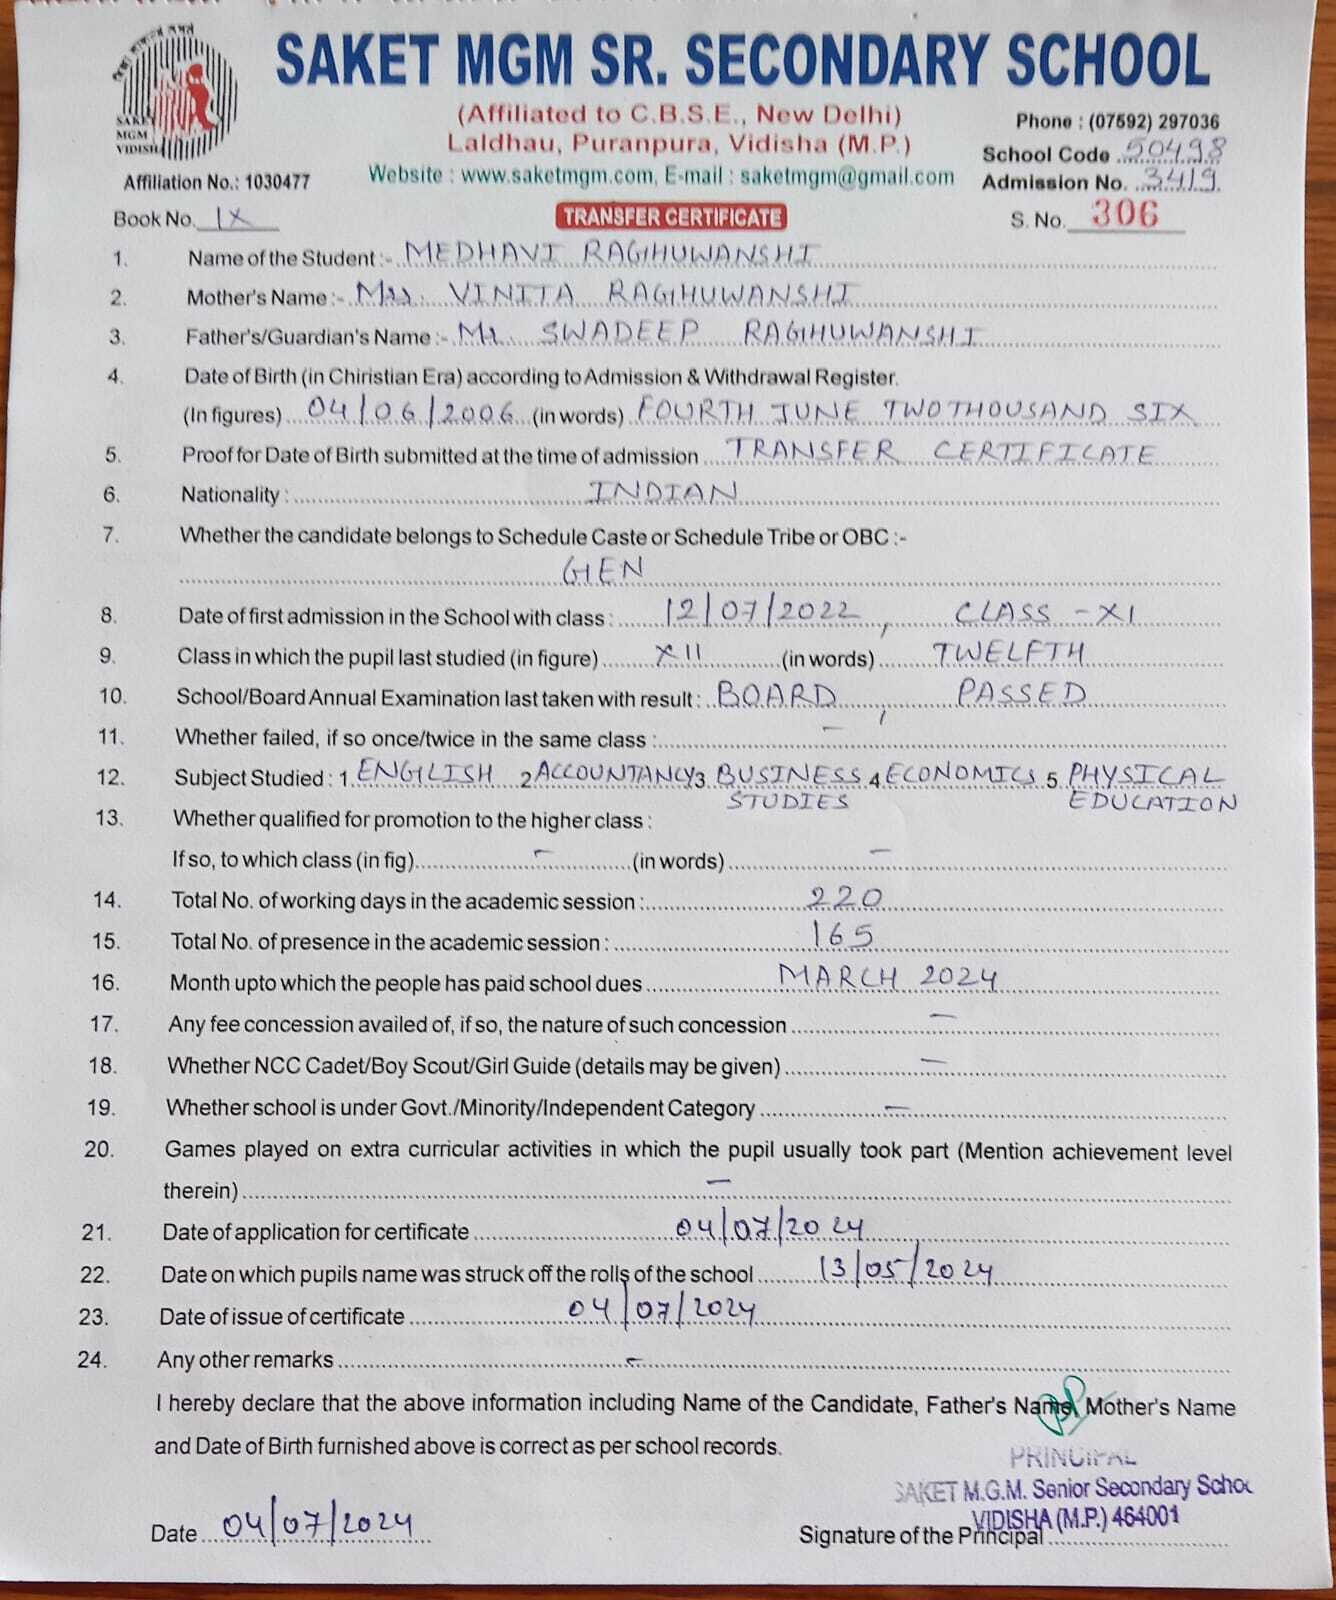 SAKET MGM SR. SECONDARY SCHOOL
(Affiliated to C.B.S.E., New Delhi)
Laldhau, Puranpura, Vidisha (M.P.)
Website : www.saketmgm.com, E-mail : saketmgm@gmail.com
SAKET
MGM
VIDISHA
Affiliation No.: 1030477
Phone : (07592) 297036
School Code 50498
Admission No. 3419
Book No. IX
TRANSFER CERTIFICATE
S. No. 306
1. Name of the Student :- MEDHAVI RAGHUWANSHI
2. Mother's Name :- Mrs. VINITA RAGHUWANSHI
3. Father's/Guardian's Name :- Mr. SWADEEP RAGHUWANSHI
4. Date of Birth (in Chiristian Era) according to Admission & Withdrawal Register.
(In figures) 04/06/2006 (in words) FOURTH JUNE TWO THOUSAND SIX
5. Proof for Date of Birth submitted at the time of admission TRANSFER CERTIFICATE
6. Nationality : INDIAN
7. Whether the candidate belongs to Schedule Caste or Schedule Tribe or OBC :-
GEN
8. Date of first admission in the School with class : 12/07/2022, CLASS - XI
9. Class in which the pupil last studied (in figure) XII (in words) TWELFTH
10. School/Board Annual Examination last taken with result : BOARD, PASSED
11. Whether failed, if so once/twice in the same class : -
12. Subject Studied : 1 ENGLISH 2 ACCOUNTANCY 3 BUSINESS STUDIES 4 ECONOMICS 5 PHYSICAL EDUCATION
13. Whether qualified for promotion to the higher class :
If so, to which class (in fig) - (in words) -
14. Total No. of working days in the academic session : 220
15. Total No. of presence in the academic session : 165
16. Month upto which the people has paid school dues MARCH 2024
17. Any fee concession availed of, if so, the nature of such concession -
18. Whether NCC Cadet/Boy Scout/Girl Guide (details may be given) -
19. Whether school is under Govt./Minority/Independent Category -
20. Games played on extra curricular activities in which the pupil usually took part (Mention achievement level
therein) -
21. Date of application for certificate 04/07/2024
22. Date on which pupils name was struck off the rolls of the school 13/05/2024
23. Date of issue of certificate 04/07/2024
24. Any other remarks -
I hereby declare that the above information including Name of the Candidate, Father's Name, Mother's Name
and Date of Birth furnished above is correct as per school records.
PRINCIPAL
SAKET M.G.M. Senior Secondary School
VIDISHA (M.P.) 464001
Date 04/07/2024
Signature of the Principal